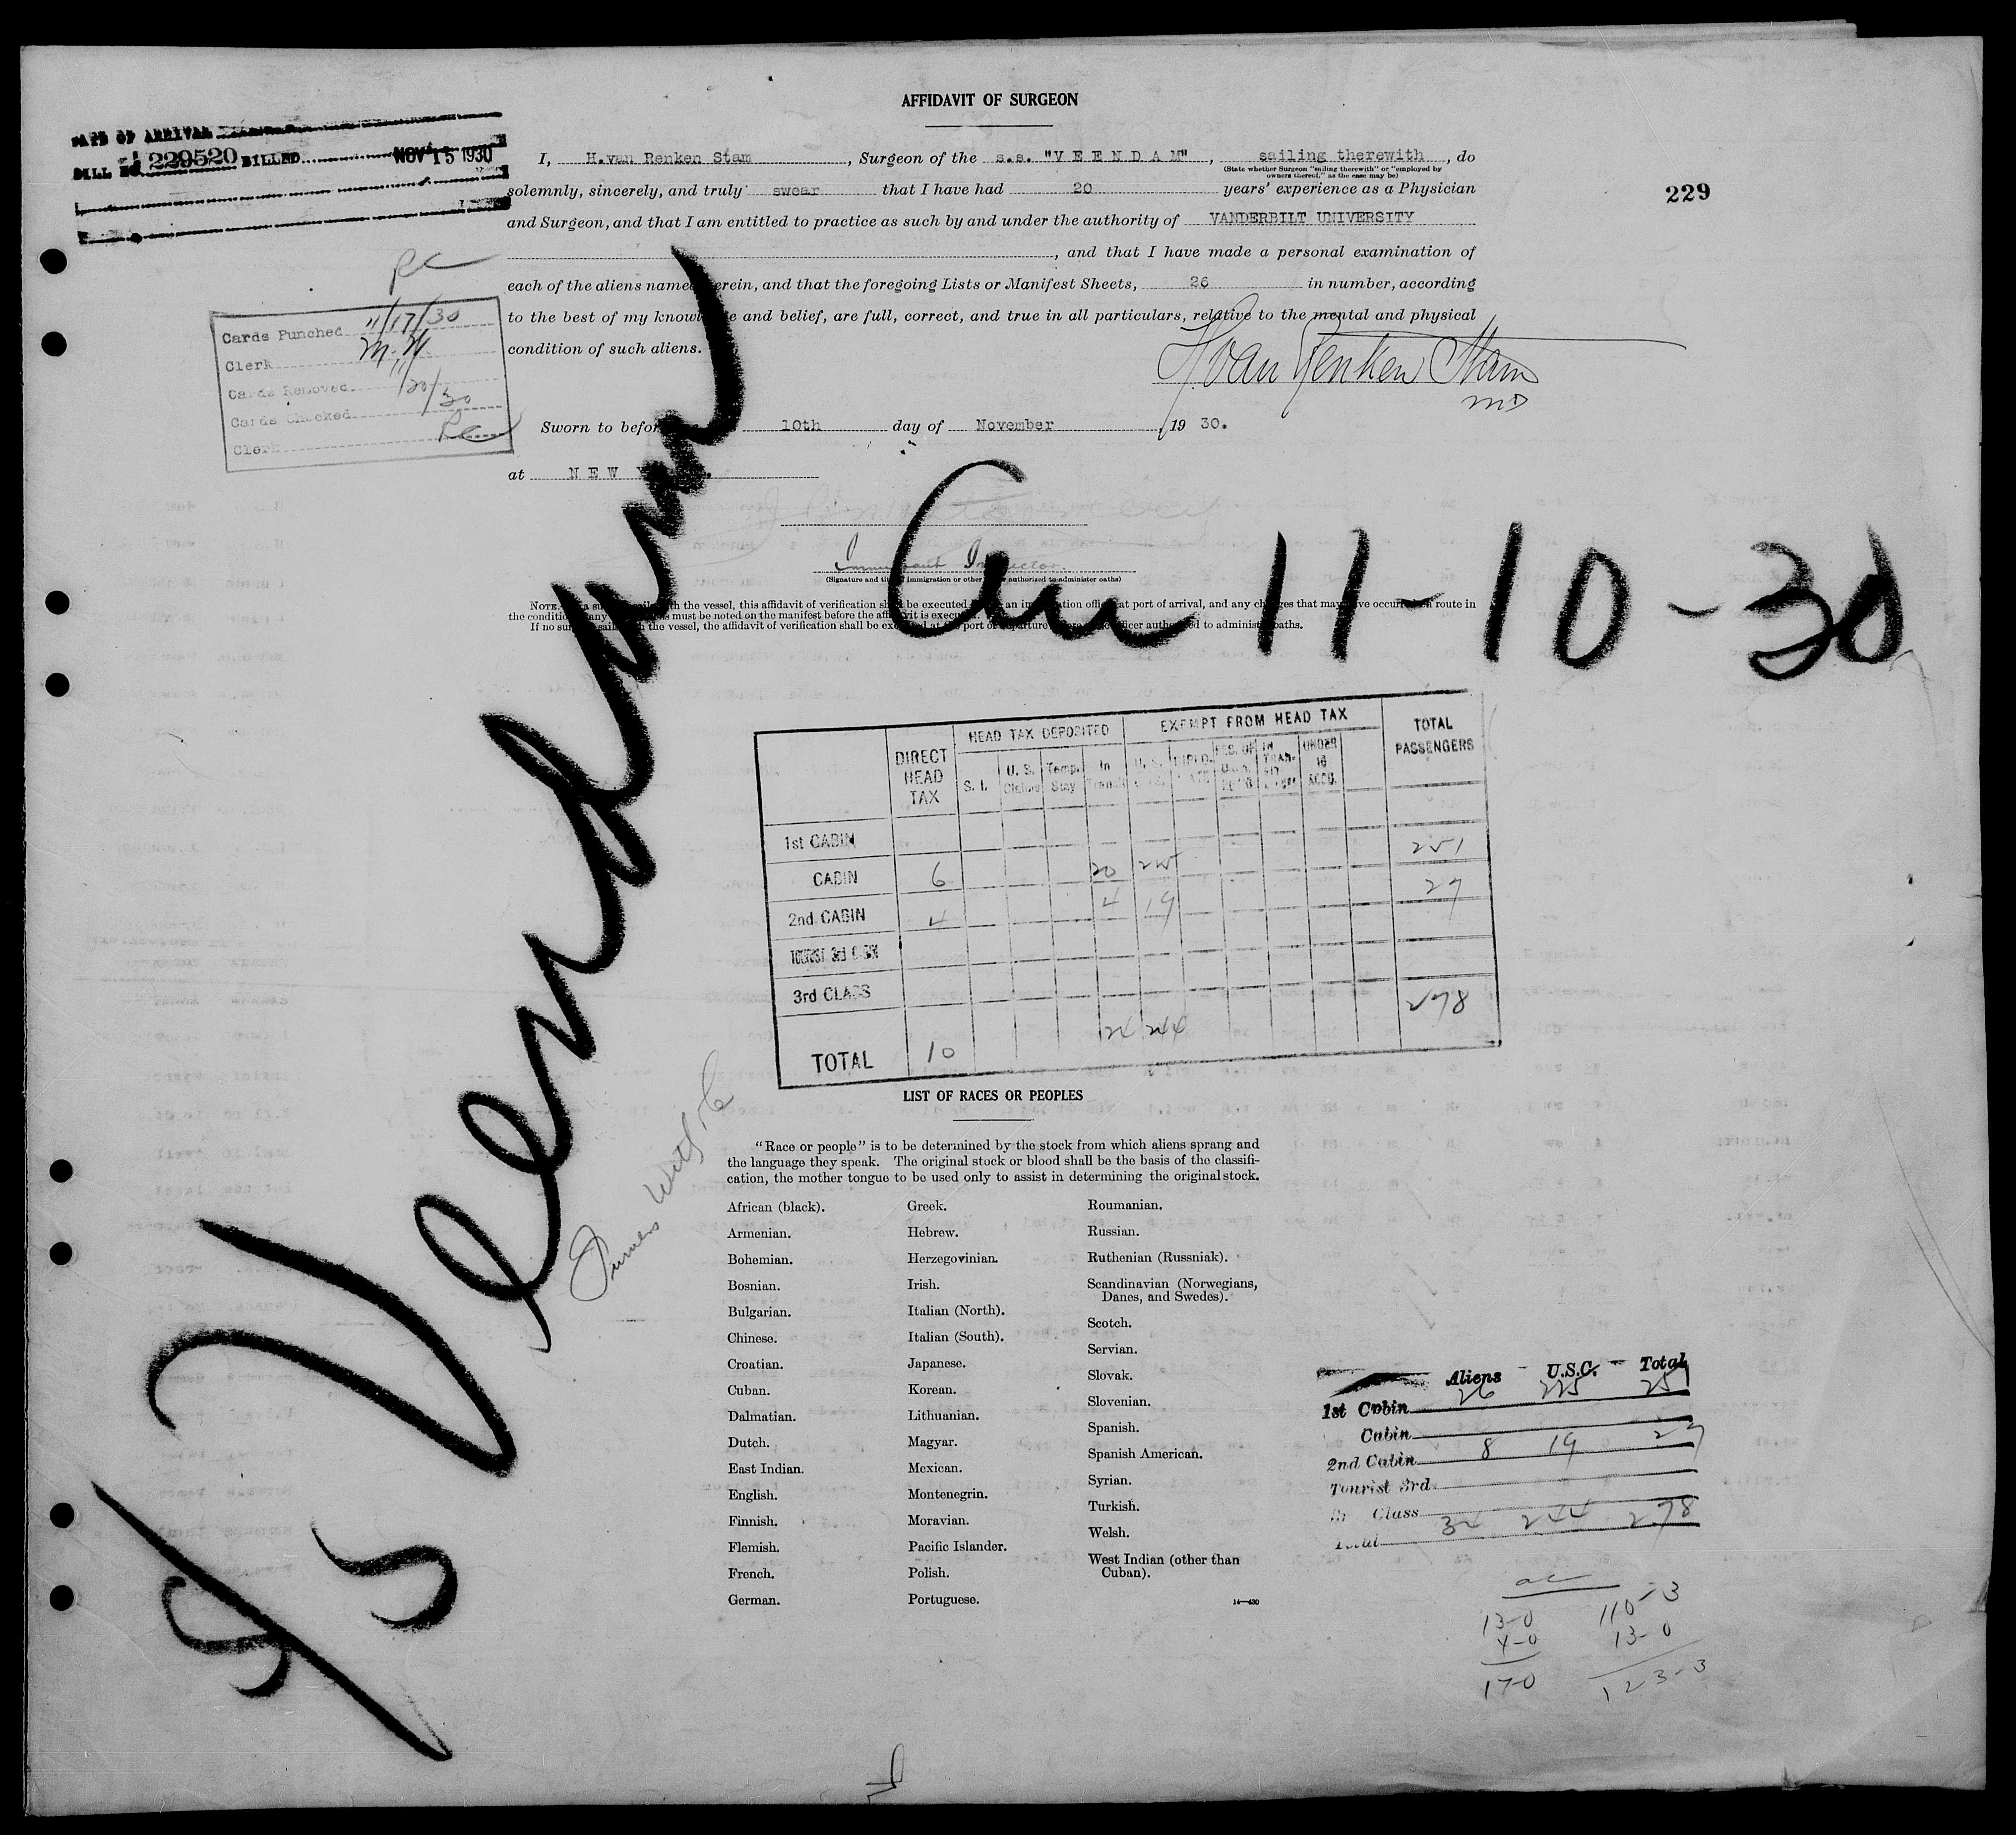 AFFIDAVIT OF SURGEON
DATE OF ARRIVAL
BILL NO 229520 BILLED NOV 15 1930
229
I, H.van Renken Stam, Surgeon of the s.s. "V E E N D A M", sailing therewith, do
(State whether Surgeon "sailing therewith" or "employed by
owners thereof," as the case may be)
solemnly, sincerely, and truly swear that I have had 20 years' experience as a Physician
and Surgeon, and that I am entitled to practice as such by and under the authority of VANDERBILT UNIVERSITY
, and that I have made a personal examination of
each of the aliens named herein, and that the foregoing Lists or Manifest Sheets, 26 in number, according
to the best of my knowledge and belief, are full, correct, and true in all particulars, relative to the mental and physical
condition of such aliens.
H. van Renken Stam
MD
Cards Punched 11/17/30
Clerk M.H.
Cards Removed
Cards Checked 11/20/30
Clerk
Sworn to before 10th day of November, 19 30.
at N E W
Immigrant Inspector
(Signature and title of immigration or other officer authorized to administer oaths)
S/S Veendam
Arr 11-10-30
NOTE. If a surgeon sails with the vessel, this affidavit of verification shall be executed before an immigration officer at port of arrival, and any changes that may have occurred en route in
the condition of any aliens must be noted on the manifest before the affidavit is executed.
If no surgeon sails with the vessel, the affidavit of verification shall be executed at the port of departure before an officer authorized to administer oaths.
DIRECT HEAD TAX
HEAD TAX DEPOSITED
EXEMPT FROM HEAD TAX
TOTAL PASSENGERS
S. I. U. S. Claims Temp. Stay In Transit UNDER 16 ACCO.
1st CABIN 251
CABIN 6 20 225 27
2nd CABIN 4 4 19
TOURIST 3rd CABIN
3rd CLASS 278
TOTAL 10 24 244
LIST OF RACES OR PEOPLES
"Race or people" is to be determined by the stock from which aliens sprang and
the language they speak. The original stock or blood shall be the basis of the classifi-
cation, the mother tongue to be used only to assist in determining the original stock.
African (black).
Armenian.
Bohemian.
Bosnian.
Bulgarian.
Chinese.
Croatian.
Cuban.
Dalmatian.
Dutch.
East Indian.
English.
Finnish.
Flemish.
French.
German.
Greek.
Hebrew.
Herzegovinian.
Irish.
Italian (North).
Italian (South).
Japanese.
Korean.
Lithuanian.
Magyar.
Mexican.
Montenegrin.
Moravian.
Pacific Islander.
Polish.
Portuguese.
Roumanian.
Russian.
Ruthenian (Russniak).
Scandinavian (Norwegians,
Danes, and Swedes).
Scotch.
Servian.
Slovak.
Slovenian.
Spanish.
Spanish American.
Syrian.
Turkish.
Welsh.
West Indian (other than
Cuban).
14—430
Aliens - U.S.C. - Total
1st Cabin 26 225 251
Cabin
2nd Cabin 8 19 27
Tourist 3rd
Class
Total 34 244 278
13-0
4-0
17-0
110-3
13-0
123-3